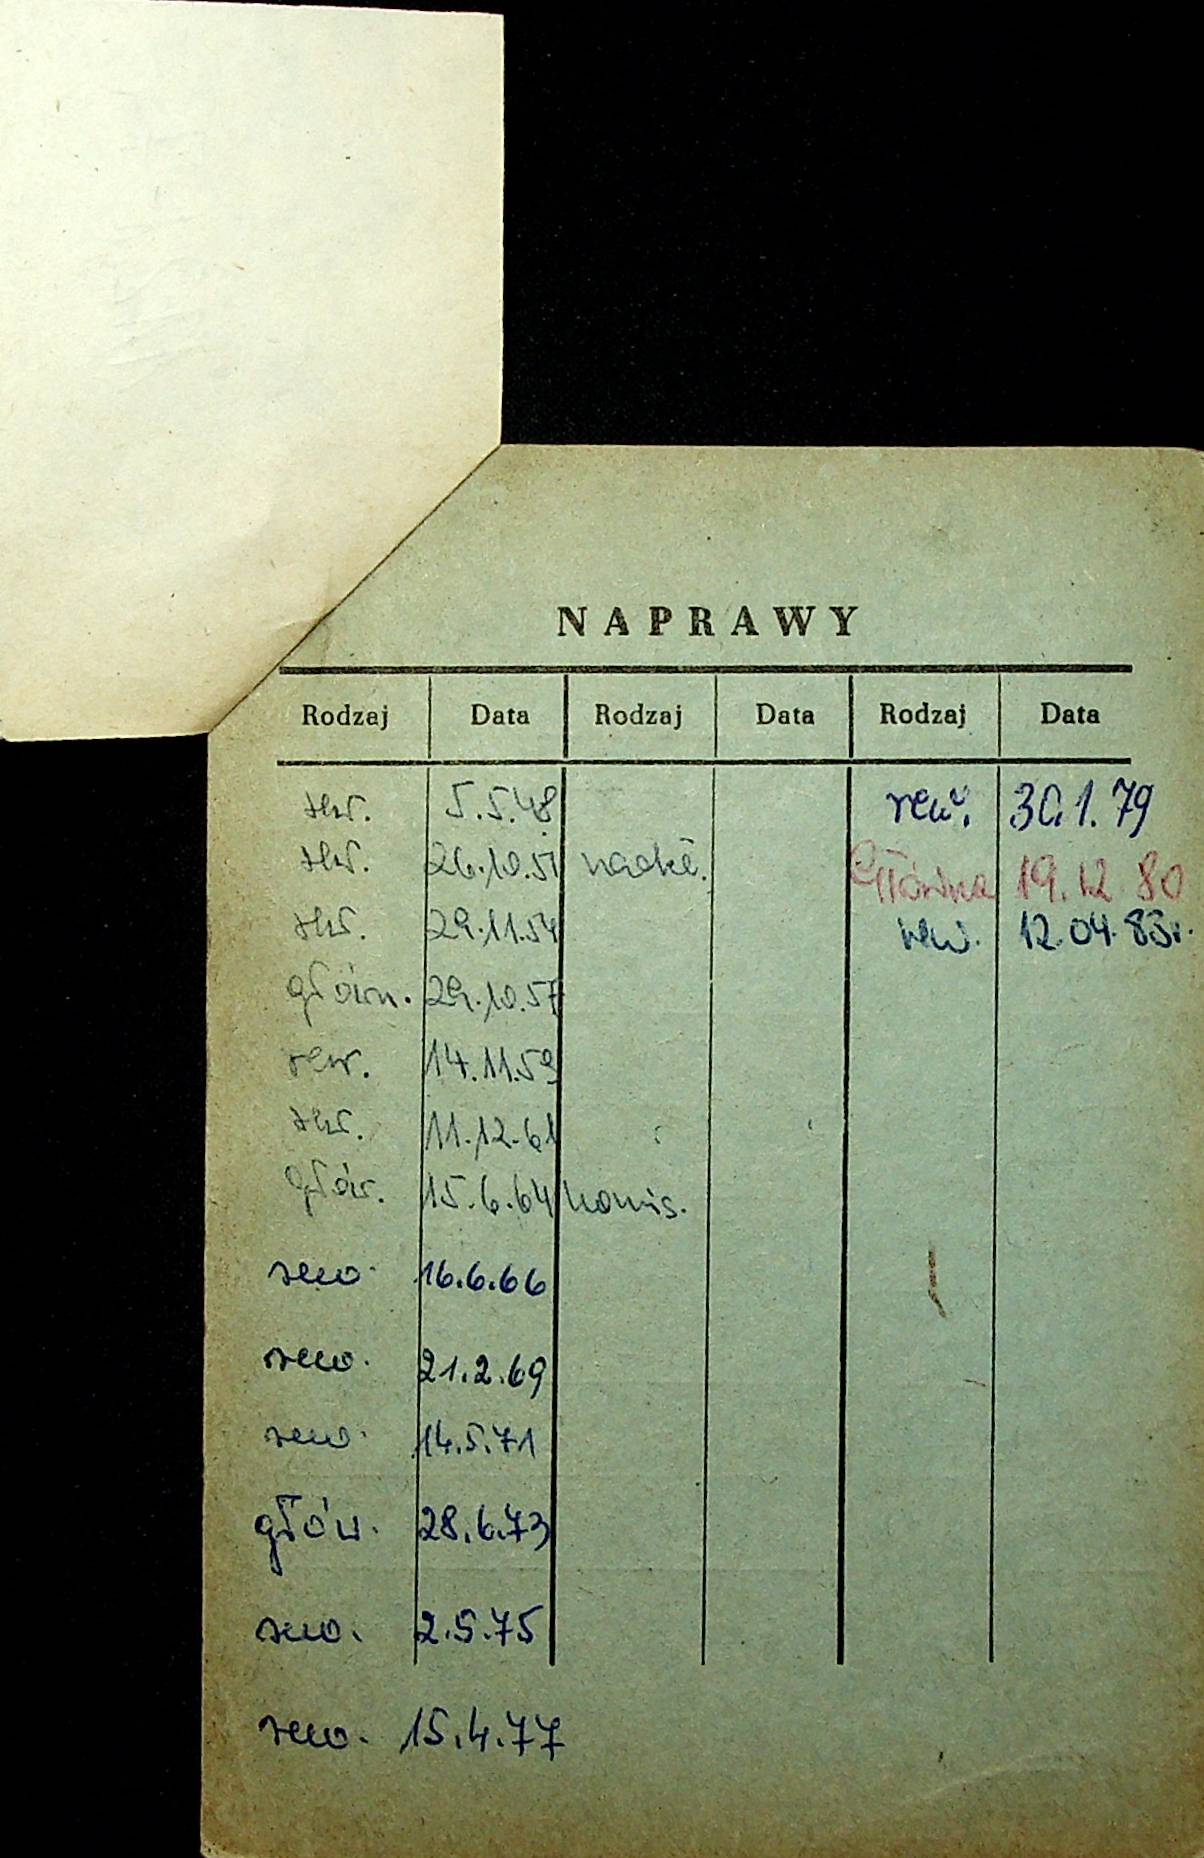 NAPRAWY
Rodzaj Data Rodzaj Data Rodzaj Data
rew. 5.5.48 rew. 30.1.79
rew. 26.10.51 Główna 19.12.80
rew. 29.11.54 rew. 12.04.83r.
główn. 29.10.57
rew. 14.11.59
rew. 11.12.61
głów. 15.6.64
rew. 16.6.66
rew. 21.2.69
rew. 14.5.71
głów. 28.6.73
rew. 2.5.75
rew. 15.4.77